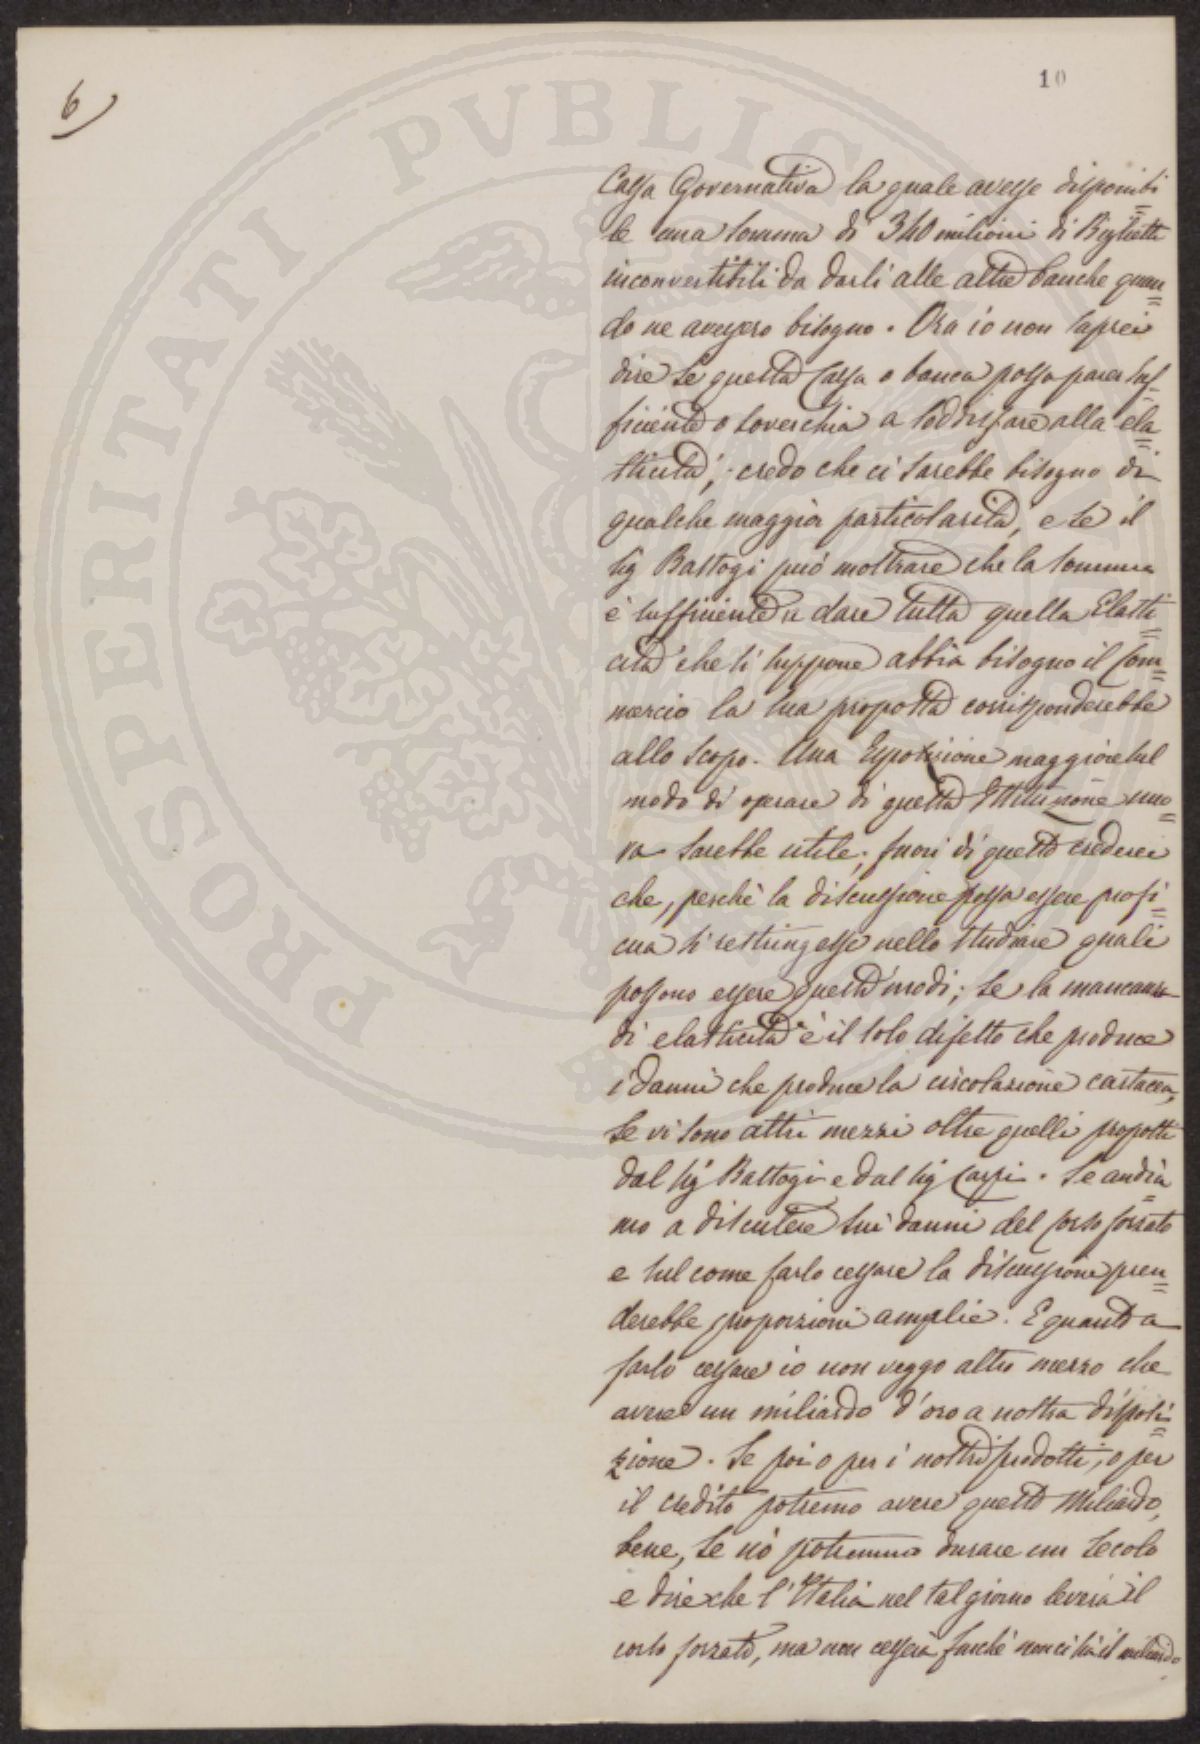 6)
10
PROSPERITATI PUBLICAE
Cassa Governativa la quale avesse disponibi
le una somma di 340 milioni di Biglietti
inconvertibili da darli alle altre banche quan
do ne avessero bisogno. Ora io non saprei
dire se questa Cassa o banca possa parer suf
ficiente o soverchia a soddisfare alla ela
sticità; credo che ci sarebbe bisogno di
qualche maggior particolarità, e se il
sig Bastogi può mostrare che la somma
è sufficiente a dare tutta quella Elasti
cità che si suppone abbia bisogno il Com
mercio la sua proposta corrisponderebbe
allo scopo. Una Esposizione maggiore sul
modo di operare di questa Istituzione nuo
va sarebbe utile; fuori di questo crederei
che, perchè la discussione possa essere profi
cua si restringesse nello studiare quali
possono essere questi modi; se la mancanza
di elasticità è il solo difetto che produce
i danni che produce la circolazione cartacea,
se vi sono altri mezzi oltre quelli proposti
dal sig Bastogi e dal sig Carpi. Se andia
mo a discutere sui danni del corso forzato
e sul come farlo cessare la discussione pren
derebbe proporzioni amplie. E quanto a
farlo cessare io non veggo altro mezzo che
avere un miliardo d'oro a nostra disposi
zione. Se poi o per i nostri prodotti, o per
il credito potremo avere questo Miliardo,
bene, se nò potremmo durare un secolo
e dire che l'Italia nel tal giorno leverà il
corso forzato, ma non cesserà finchè non ci sia il miliardo